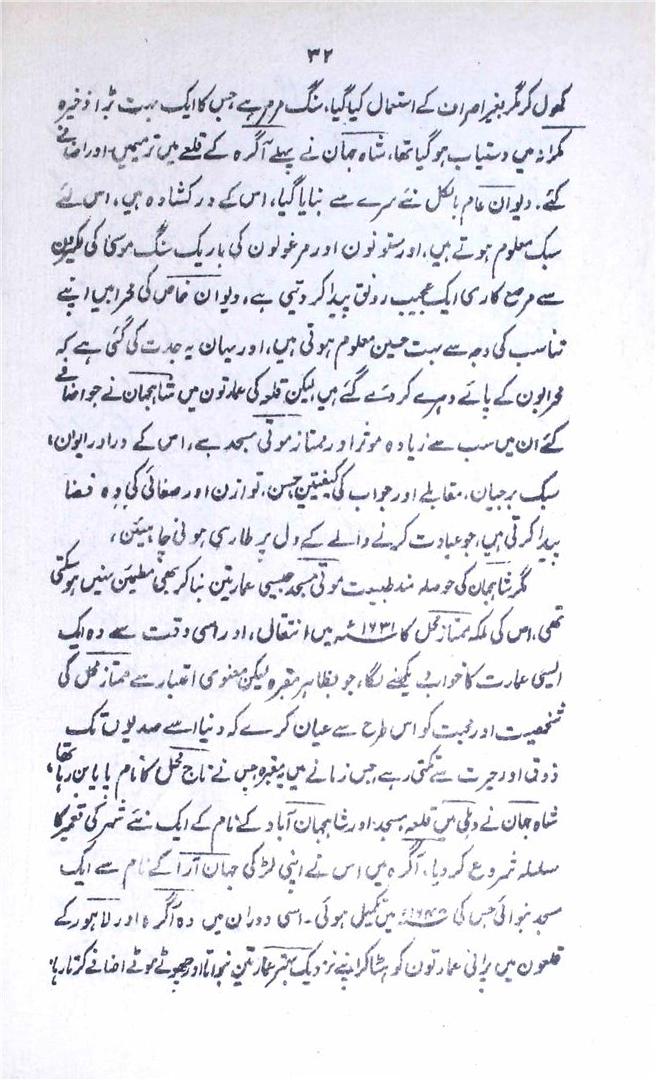 ۳۲
کھول کر مگر بغیر اصراف کے استعمال کیا گیا، سنگ مرمر ہے جس کا ایک بہت بڑا ذخیرہ
مکرانہ میں دستیاب ہو گیا تھا، شاہ جہان نے پہلے آگرہ کے قلعے میں ترمیمیں اور اضافے
کئے۔ دیوان عام بالکل نئے سرے سے بنایا گیا، اس کے در کشادہ ہیں، اس لئے
سبک معلوم ہوتے ہیں، اور ستونون اور مرغولون کی باریک سنگ موسیٰ کی لکیرون
سے مرصع کاری ایک عجیب رونق پیدا کر دیتی ہے، دیوان خاص کی محرابیں اپنے
تناسب کی وجہ سے بہت حسین معلوم ہوتی ہیں، اور یہان یہ جدت کی گئی ہے کہ
محرابون کے پائے دہرے کر دئے گئے ہیں لیکن قلعہ کی عمارتون میں شاہجہان نے جو اضافے
کئے ان میں سب سے زیادہ موثر اور ممتاز موتی مسجد ہے، اس کے در اور ایوان،
سبک برجیان، مقابلے اور جواب کی کیفیتین حسن، توازن اور صفائی کی وہ فضا
پیدا کرتی ہیں، جو عبادت کرنے والے کے دل پر طاری ہونی چاہیئن،
مگر شاہجہان کی حوصلہ مند طبیعت موتی مسجد جیسی عمارتین بنا کر بھی مطمئن نہیں ہو سکتی
تھی، اس کی ملکہ ممتاز محل کا ۱۶۳۱ء میں انتقال، اور اسی وقت سے وہ ایک
ایسی عمارت کا خواب دیکھنے لگا، جو بظاہر مقبرہ لیکن معنوی اعتبار سے ممتاز محل کی
شخصیت اور محبت کو اس طرح سے عیان کرے کہ دنیا اسے صدیوں تک
ذوق اور حیرت سے تکتی رہے، جس زمانے میں یہ مقبرہ جس نے تاج محل کا نام پایا بن رہا تھا،
شاہ جہان نے دہلی میں قلعہ مسجد اور شاہجہان آباد کے نام کے ایک نئے شہر کی تعمیر کا
سلسلہ شروع کر دیا، آگرہ میں اس نے اپنی لڑکی جہان آرا کے نام سے ایک
مسجد بنوائی جس کی میں تکمیل ہوئی۔ اسی دوران میں وہ آگرہ اور لاہور کے
قلعون میں پرانی عمارتون کو ہٹا کر اپنے نزدیک بہتر عمارتین بنواتا اور چھوٹے موٹے اضافے کرتا رہا،